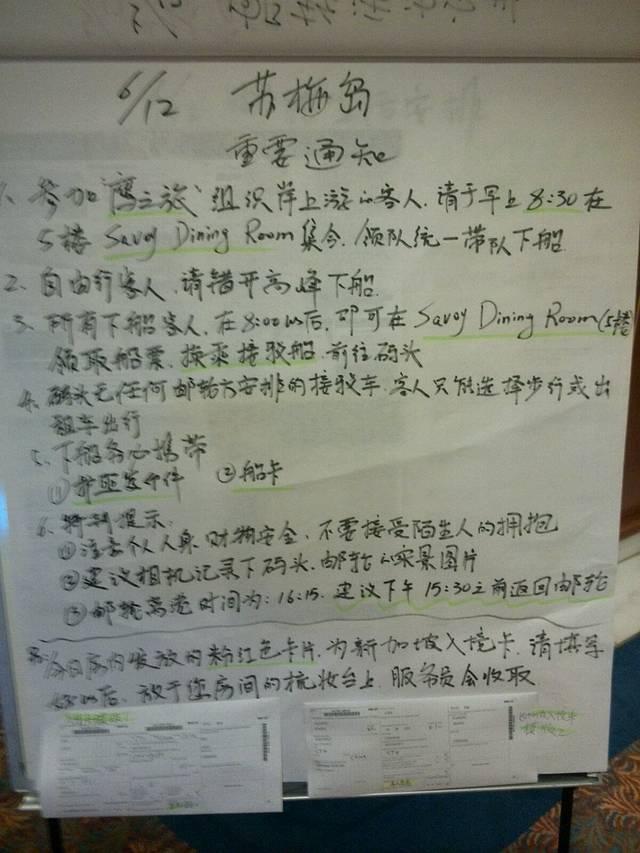 6/12 苏梅岛
重要通知
1、参加"鹰之旅"组织岸上游的客人，请于早上8:30在
5楼 Savoy Dining Room 集合，领队统一带队下船
2、自由行客人，请错开高峰下船
3、所有下船客人，在8:00以后，即可在 Savoy Dining Room (5楼
领取船票，换乘接驳船，前往码头
4、码头无任何邮轮方安排的接驳车，客人只能选择步行或出
租车出行
5、下船务必携带
① 复印件 ② 船卡
6、特别提示：
① 注意个人人身、财物安全，不要接受陌生人的拥抱
② 建议相机记录下码头、邮轮的实景图片
③ 邮轮离港时间为：16:15，建议下午15:30之前返回邮轮
今日房内发放的粉红色卡片，为新加坡入境卡，请填写
好以后，放于您房间的梳妆台上，服务员会收取